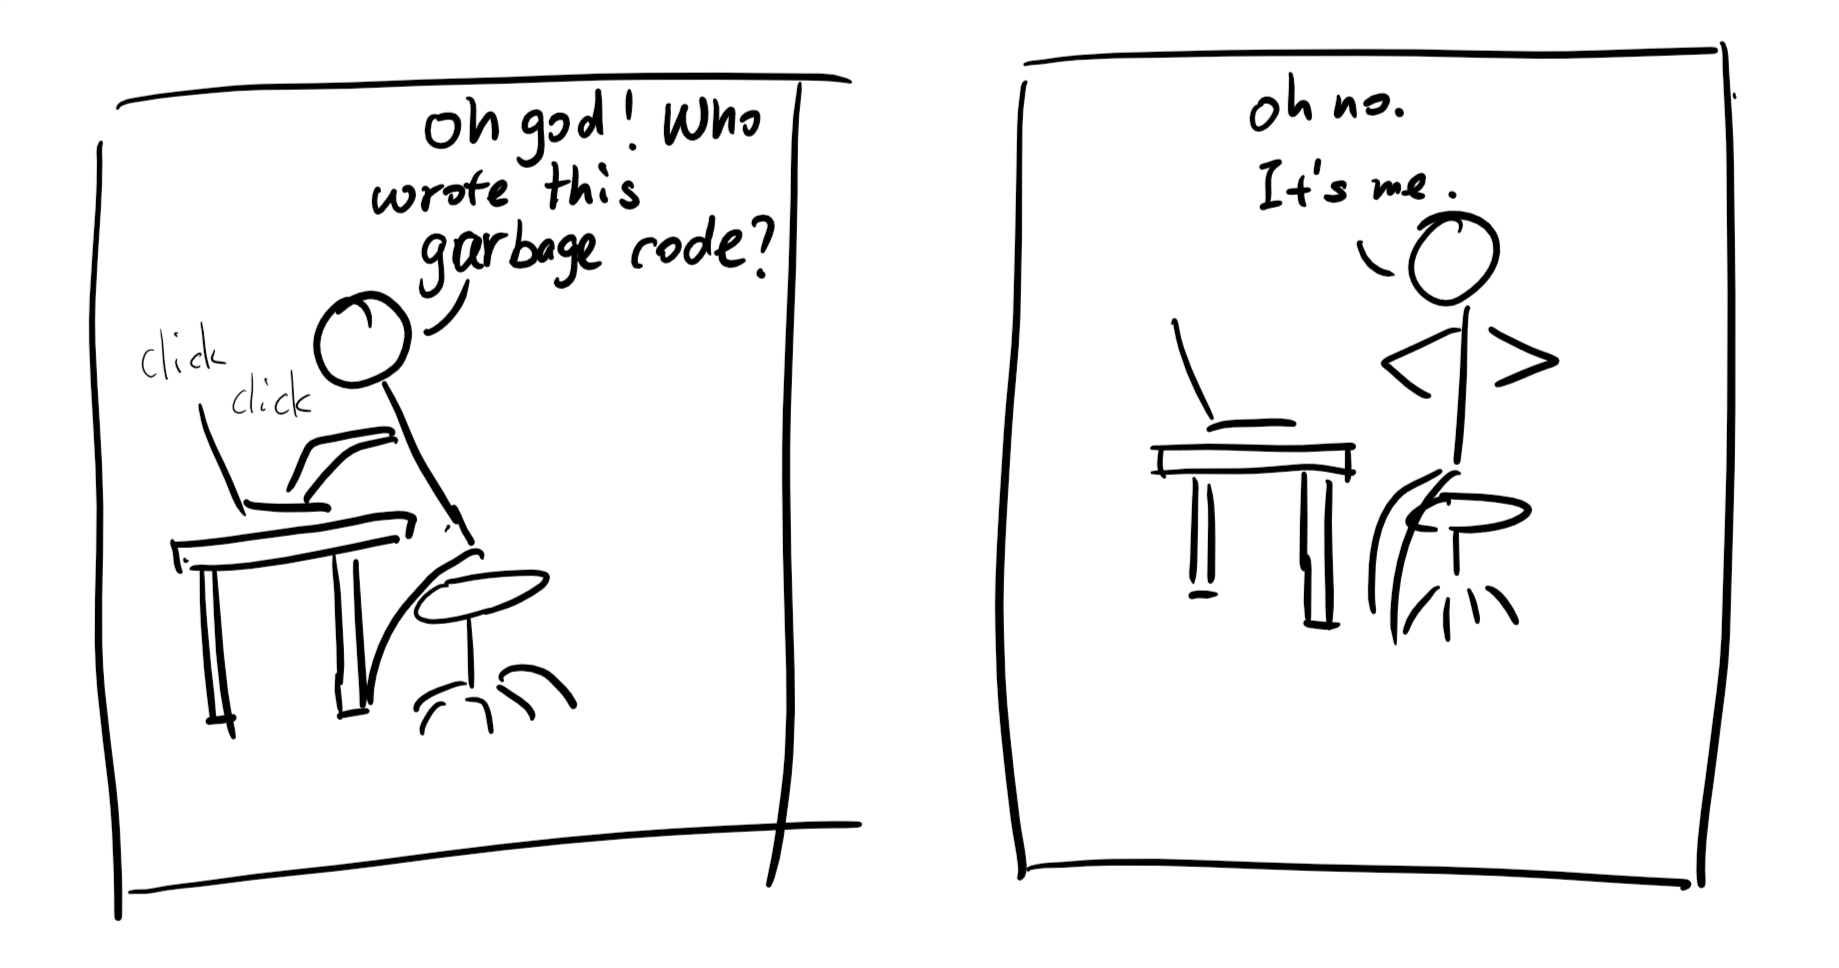 Oh god! Who
wrote this
garbage code?
click
click
oh no.
It's me.